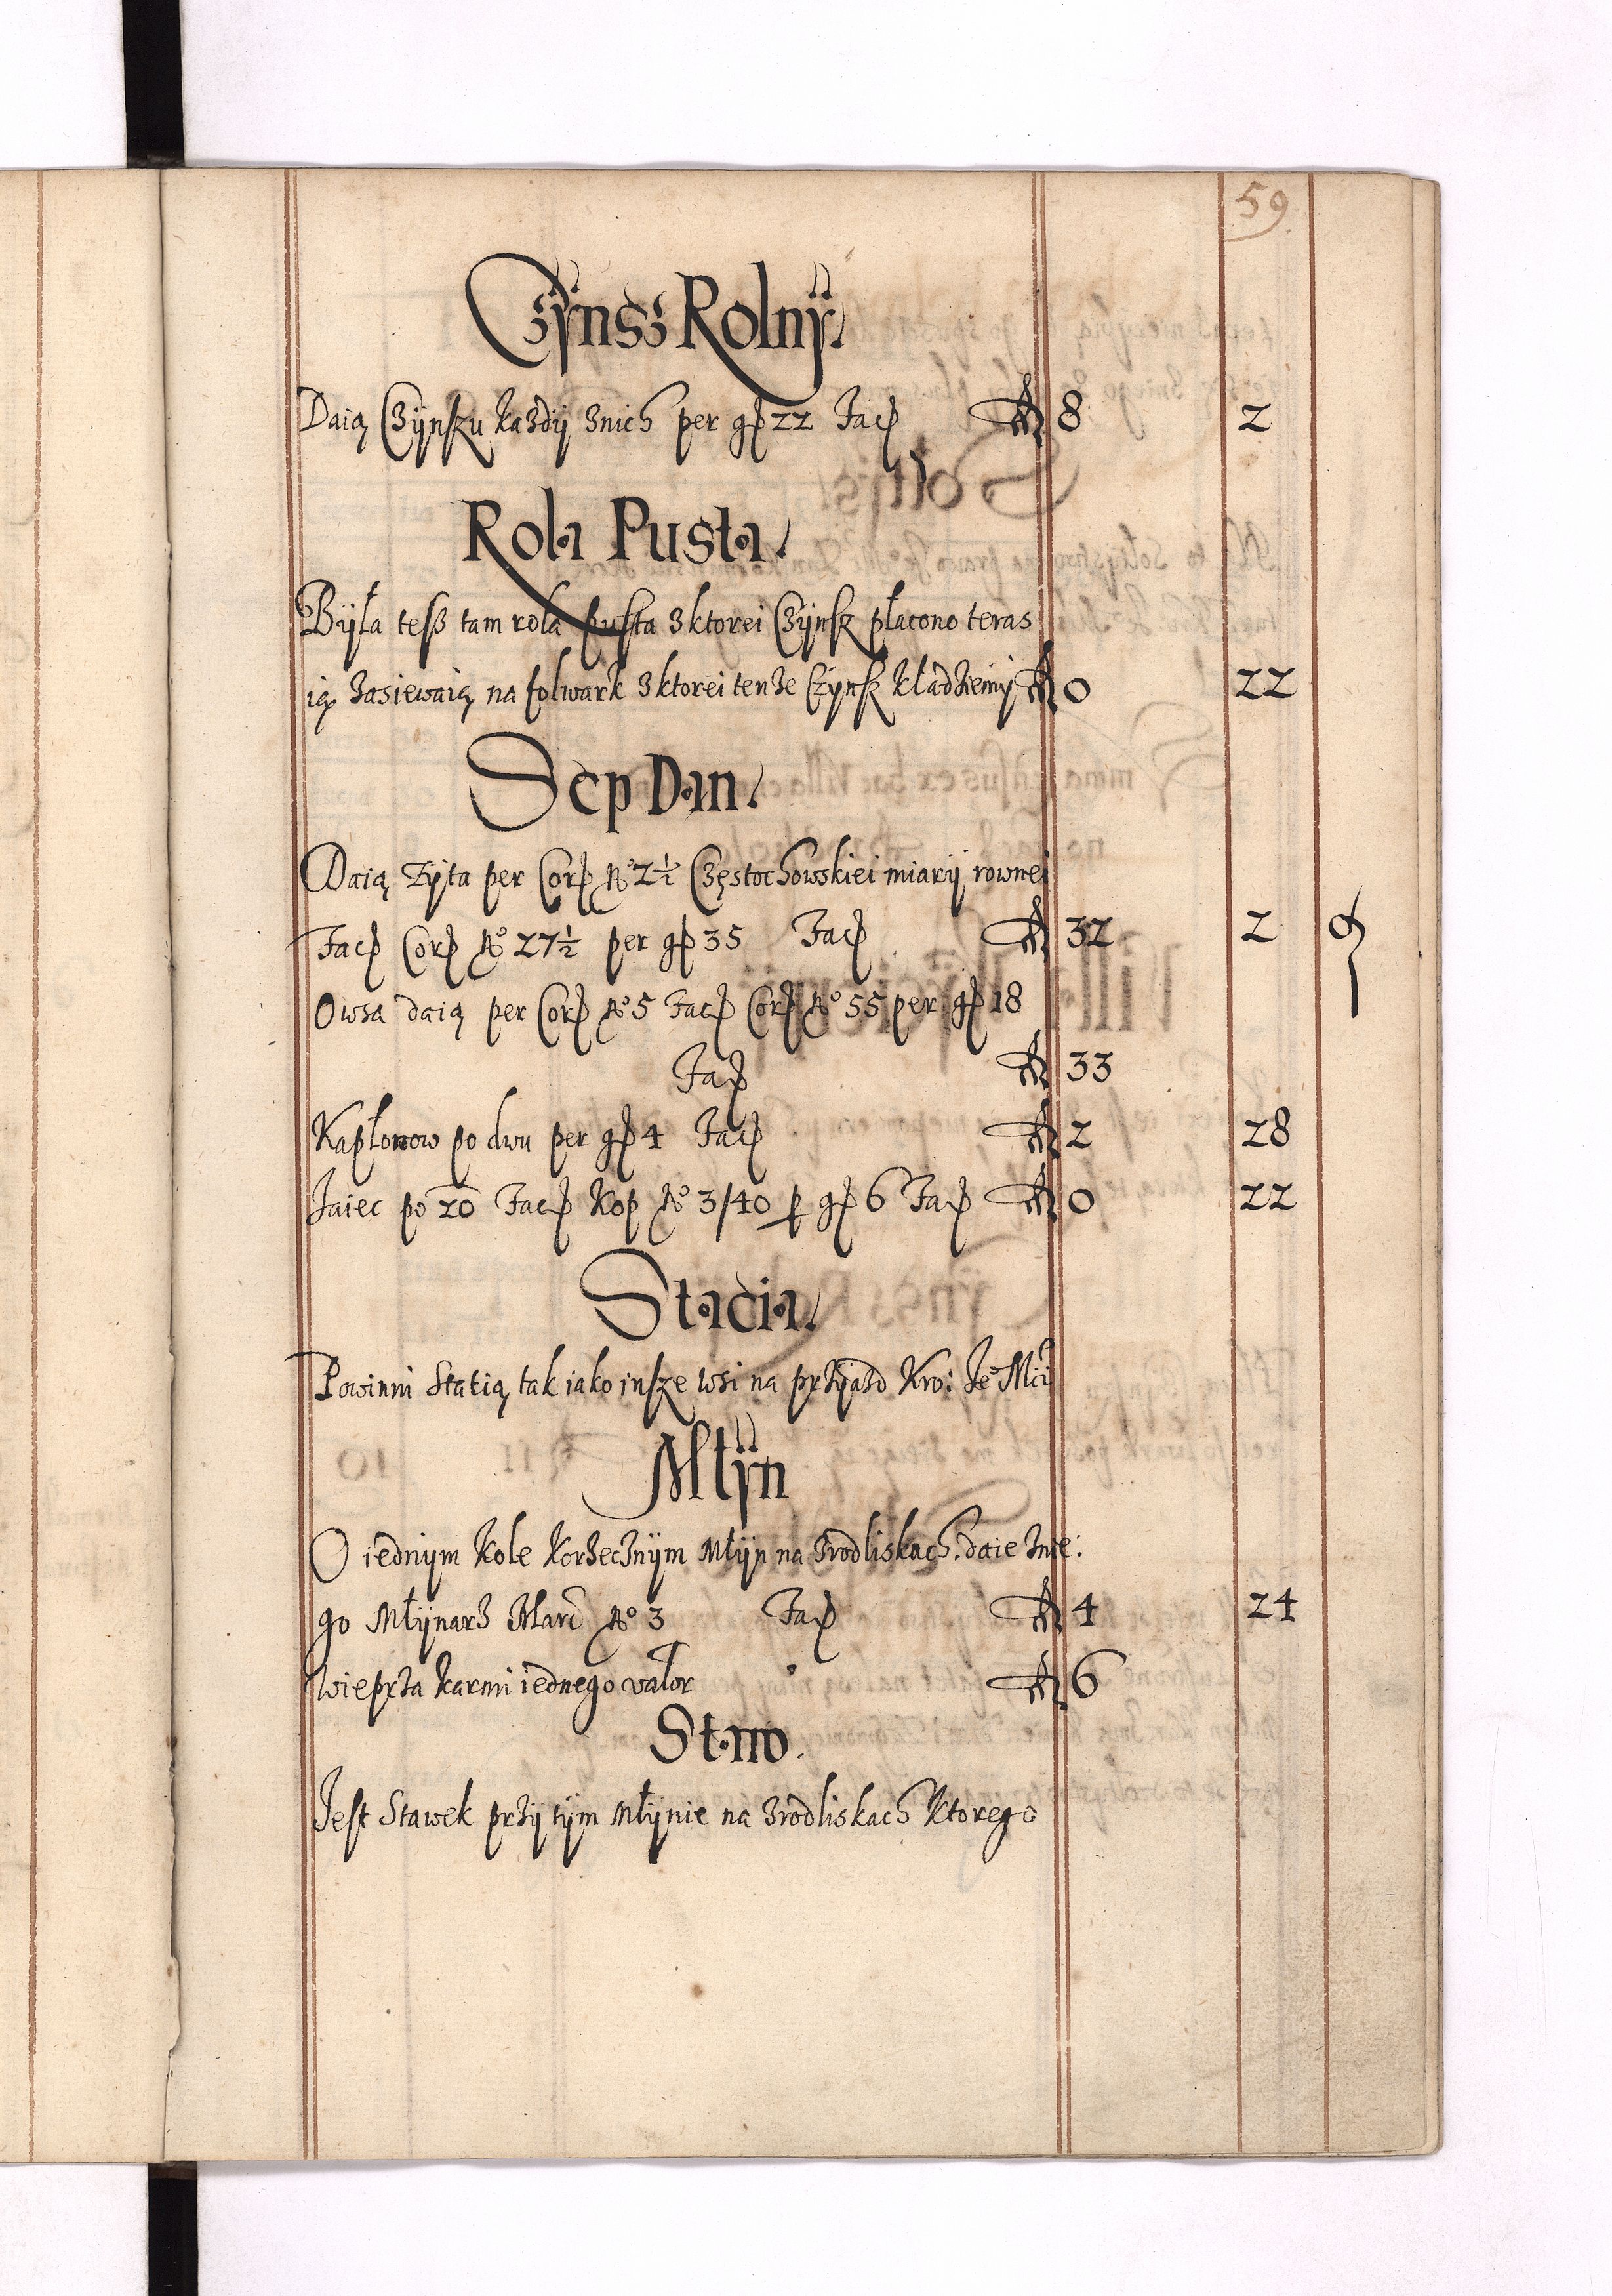 59
Czÿnsz Rolnÿ.
Daią Czÿnszu każdÿ znich per gρ 22 Facρ fl 8 2
Rola Pusta.
Bÿła tesz tam rola pusta zktorei Czÿnsz płacono teras
ią zasiewaią na folwark zktorei tenże Czÿnsz kładziemÿ fl 0 22
Sep Dan.
Daią Zÿta per Corρ No 2½ Częstochowskiei miarÿ rownei
Facρ Corρ No 27½ per gρ 35 Facρ fl 32 2 9
Owsa daią per Corρ No 5 Facρ Corρ No 55 per gρ 18
Facρ fl 33
Kapłonow po dwu per gρ 4 Facρ fl 2 28
Jaiec po 20 Facρ Kop No 3/40 p gρ 6 Facρ fl 0 22
Stacia.
Powinni Statią tak iako insze wsi na prżÿazd Kro: Je° Mći
Młÿn
O iednÿm Kole Korzecznÿm Młÿn na Zrodliskach. daie znie:
go Młÿnarz Marc No 3 Facρ fl 4 24
Wieprza karmi iednego valor fl 6
Staw.
Jest Stawek prżÿ tÿm Młÿnie na Zrodliskach Ktorego